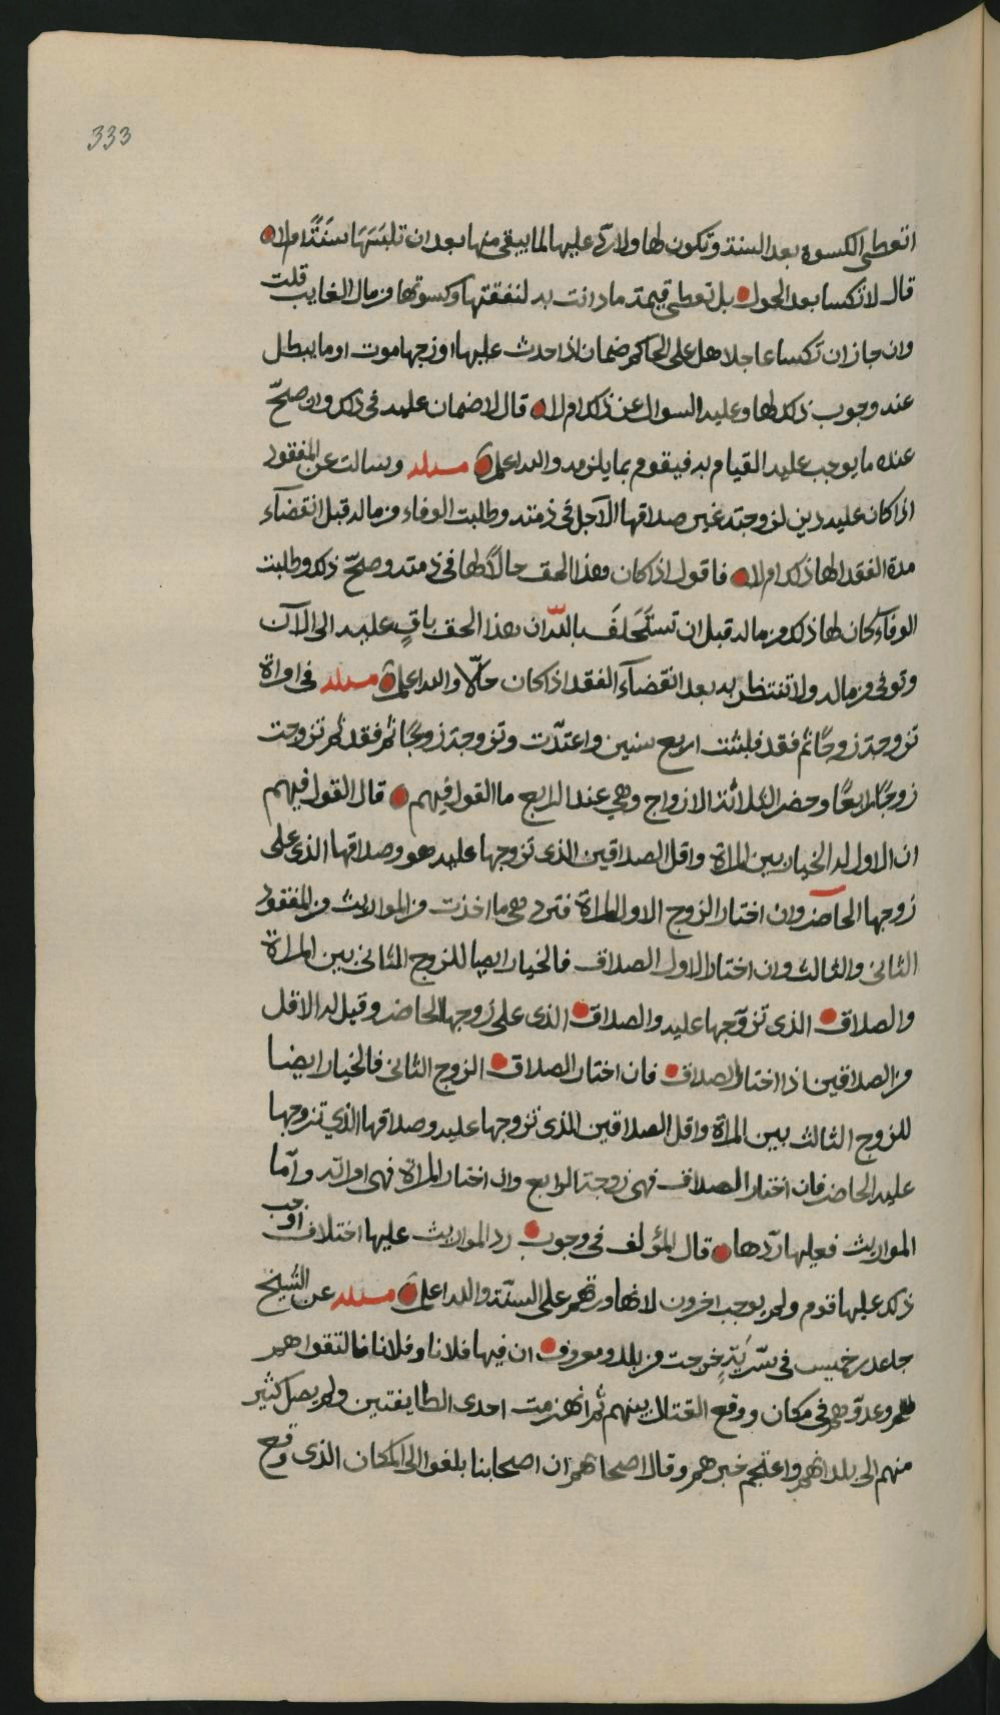 333
اتعطى الكسوة بعد السنة وتكون لها ولا ردّ عليها لما يبقى منها بعد ان تلبَسَهَا سَنَةً ام لا
قال لا تكسا بعد الحول بل تعطى قيمة ما دانت به لنفقتها وكسوتها من مال الغايب قلت
وان جاز ان تكسا عاجلا هل على الحاكم ضمان اذا حدث عليها او زوجها موت او ما يبطل
عند وجوب ذلك لها وعليه السوال عن ذلك ام لا قال لا ضمان عليه فى ذلك وان صحّ
عنده ما يوجب عليه القيام به فيقوم بما يلزمه والله اعلم مسئله وسالت عن المفقود
اذا كان عليه دين لزوجته غير صداقها الآجل فى ذمته وطلبت الوفاء من ماله قبل انقضآء
مدة الفقد الها ذلك ام لا فاقول اذا كان هذا الحق حالًّا لها فى ذمته وصحّ ذلك وطلبت
الوفآء كان لها ذلك من ماله قبل ان تستَحلَفَ بالله ان هذا الحق باقٍ عليه الى الآن
وتوفى من ماله ولا تنتظر به بعد انقضآء الفقد اذا كان حلّا والله اعلم مسئله فى امراة
تزوجت زوجًا ثم فقد فلبثت اربع سنين واعتدّت وتزوجت زوجًا ثم فقد ثم تزوجت
زوجًا رابعًا وحضر الثلاثة الازواج وهي عند الرابع ما القول فيهم قال القول فيهم
ان الاول له الخيار بين المراة واقل الصداقين الذى تزوجها عليه هو وصداقها الذى على
زوجها الحاضر وان اختار الزوج الاول المراة فترد هى ما اخذت من المواريث من المفقود
الثانى والثالث وان اختار الاول الصداق فالخيار ايضا للزوج الثانى بين المراة
والصداق الذى تزوّجها عليه والصداق الذى على زوجها الحاضر وقيل له الاقل
من الصداقين اذا اختار الصداق فان اختار الصداق الزوج الثانى فالخيار ايضا
للزوج الثالث بين المراة واقل الصداقين الذى تزوجها عليه وصداقها الذي تزوجها
عليه الحاضر فان اختار الصداق فهى زوجة الرابع وان اختار المراة فهى امراته وامّا
المواريث فعليها ردّها قال المؤلف فى وجوب رد المواريث عليها اختلاف اوجب
ذلك عليها قوم ولم يوجب اخرون لانها ورثتهم على السنّة والله اعلم مسئله عن الشيخ
جاعد بن خميس فى سَرِيَّةٍ خرجت من بلد ومعروف ان فيها فلانا وفلانا فالتقوا هم
وعدوّهم فى مكان ووقع القتال بينهم ثم انهزمت احدى الطايفتين ولم يصل كثير
منهم الى بلدانهم واعتجم خبرهم وقال اصحابهم ان اصحابنا بلغوا الى المكان الذى وقع